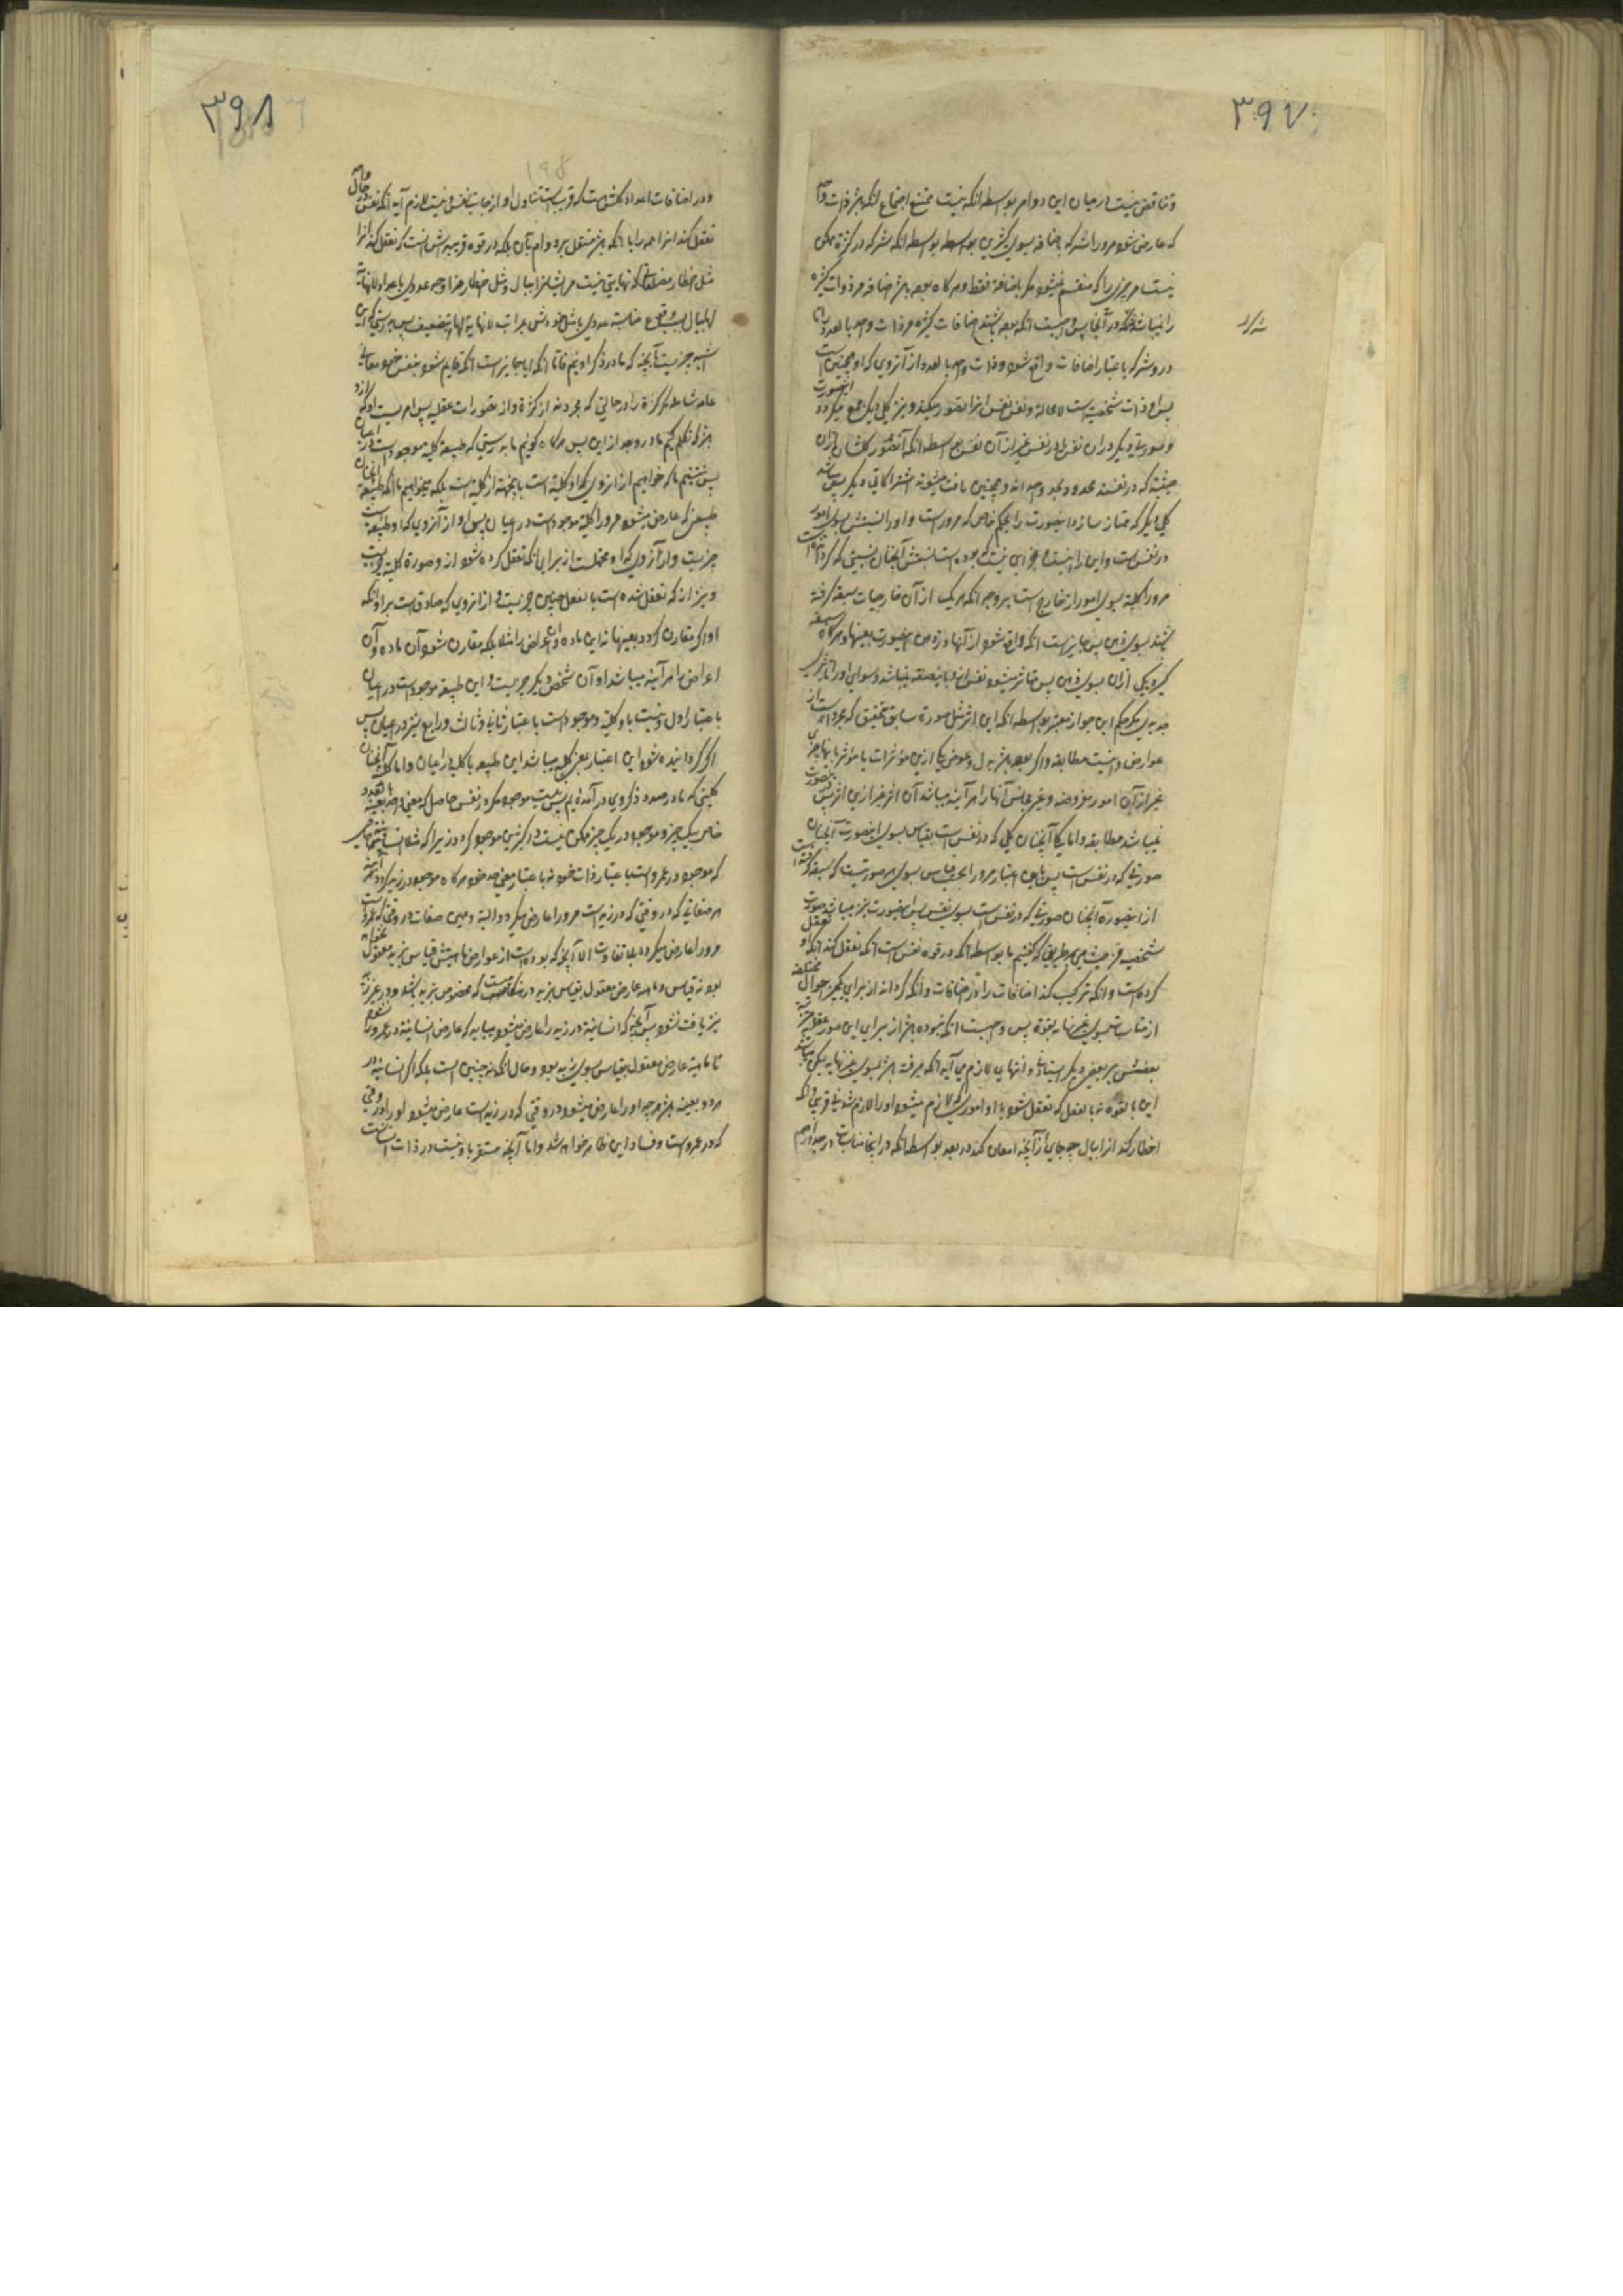 ۳۹۷
و تناقض نیست در میان این دو امر بواسطه انکه نیست ممتنع اجتماع انکه باشد ذات واحد
که عارض شود مرورا شرکه باضافه بسوی کثیرین بواسطه انکه شرکه در کثرة ممکن
نیست مر چیزی را که منقسم نمیشود مگر باضافة فقط و هرگاه بوده باشد اضافه مر ذوات کثیره
را نمیباشد شرکه در آنجا پس واجبست انکه بوده باشند اضافات کثیره مر ذات واحد بالعدد را و اما
شرکه
در و شرکه باعتبار اضافات واقع شود و ذات واحد بالعدد از آنروی که او همچنین است
پس او ذات شخصیه است لامحاله و نفس نفس انرا تصور میکند و نیز کلی دیگر جمع میکردد اینصورت
و صورت دیگر در ان نفس یا در نفس غیر از آن نفس بواسطه انکه
حیثیة که در نفسند محدود بحد واحد اند و همچنین یافت میشوند اشتراکاتی دیگر پس میباشد
کلی دیگر که ممتاز سازد اینصورت را بحکم خاص که مروراست و او را نسبتش بسوی امور
در نفس است و این را نیست
مرورا کلیة بسوی امور از خارج است بر وجه انکه هر یک از آن خارجیات سبقه گرفته
باشند بسوی ذهن پس جایز است انکه واقع شود از آنها در ذهن اینصورت بعینها و هرگاه سبقه
گیرد یکی از ان بسوی ذهن پس متاثر میشود نفس از و باینصفه نمیباشد سوای او را تاثیری
جدید مگر بحکم این جواز معتبر بواسطه انکه این اثر مثل صورة سابق تحقیق که مجرد است از
عوارض و اینست مطابقه و اگر بوده باشد بدل و عوض یکی ازین مؤثرات یا مؤثر بانها چیزی
غیر از آن امور مفروضه و غیر مجانس آنها را هر آینه میباشد آن اثر غیر ازین اثر پس اینصورت
نمیباشد مطابقه و اما کلی آنچنان کلی که در نفس است بقیاس بسوی اینصورت آنچنان
صورتی که در نفس است پس باین اعتبار مرورا بحسب قیاس بسوی هر صورتیست که سبقه گرفته است
از اینصورة آنچنان صورتی که در نفس است بسوی نفس پس اینصورت نیز میباشد صورت
شخصیه از حیثیت همین طریقی که گفتیم ما بواسطه انکه در قوه نفس است انکه تعقل کند انکه او تعقل
کرده است و انکه ترکیب کند اضافات را در اضافات و انکه گرداند از برای یکچیز احوال مختلفه
از مناسبات بسوی غیر نهایه بقوة پس واجبست انکه نبوده باشد از برای این صور عقلیه مترتبه
بعضش بر بعض دیگر ایستادنی و انتهایی و لازم می آید انکه رفته باشد بسوی غیر نهایه لیکن میباشد
این بالقوه نه بالفعل که تعقل شود با او اموری که لازم میشود او را لازم شدنی قریبی و انکه
اخطار کند انرا ببال چه جای از آنچه امعان کند در بعد بواسطه انکه در اینجا مناسبات در جذور صم
۳۹۸
۱۹۸
و در اضافات اعداد کلش هست که قریبست تناول او از جانب نفس و نیست لازم آید انکه نفس در حال واحد
تعقل کند انرا همه را یا انکه باشد مشتغل بر دوام بآن بلکه در قوه قریبه اش است که تعقل کند انرا
مثل اخطار مضلعاتی که نهایتی نیست مر ایشانرا ببال و مثل اخطار مزاوجه عددی باعداد لانهایة
لها ببال بلکه بوقوع مناسبة عددی با مثل خودش مراتب لانهایة لها بتضعیف پس بدرستیکه این
اشبه چیزیست بآنچه که ما در ذکر اوئیم فامّا انکه ایا جایز است انکه قایم شود بنفس خود معانی
عامه شامله مر کثرة را در حالتی که مجرد باشند از کثرة و از تصورات عقلیه پس امریست او که زود
باشد که تکلم کنیم ما در و بعد ازین پس هرگاه گوئیم ما بدرستی که طبیعة کلیه موجود است در اعیان
پس نیستیم ما که خواهیم از انروی که او کلیة است باینجهة از کلیة است بلکه میخواهیم ما انکه طبیعة آنچنان
طبیعتی که عارض میشود مرورا کلیة موجود است در اعیان پس او از آنروی که او طبیعة است
چیزیست و از آنروی که او محتملست از برای انکه تعقل کرده شود از و صورة کلیه چیزیست
و نیز از انکه تعقل شده است بالفعل چنین چیزیست و از انروی که صادق است بر او انکه
او اگر مقارن گردد بعینها نه این ماده و این اعراض را مثلا بلکه مقارن شود آن ماده و آن
اعراض را هر آینه میباشد او آن شخص دیگر چیزیست و این طبیعة موجود است در اعیان
باعتبار اول و نیست با و کلیة و موجود است باعتبار ثانی و ثالث و رابع نیز در اعیان پس
اگر گردانیده شود این اعتبار بمعنی کلیة میباشد این طبیعه با کلیة در اعیان و اما کلیة آنچنان
کلیتی که ما در صدد ذکر وی در آمده ایم پس نیست موجود مگر در نفس
خاص بیک چیز و موجود در یک چیز ممکن نیست در کثیرین موجود گردد زیرا که مثلا انسانیة
که موجود در عمرو است باعتبار ذات خود نه باعتبار معنی حد خود هرگاه موجود در زید گردد آینه
هر صفاتی که در وقتی که در زید است مرورا عارض میگردد البته و همین صفات در وقتی که عمرو است
مرورا عارض میگردد بلا تفاوت الا آنچه که بوده است از عوارض ماهیتش قیاس بزید معقول
بود نه قیاس و ماسه عارض معقول بقیاس بزید در که مخصوص بزید باشد و در غیر زید
نیز یافت نشود پس آنچه که انسانیة در زید را عارض میشود میباید که عارض انسانیة در عمرو را
تا ماهیة عارض معقول بقیاس بسوی زید بود و حال انکه نه چنین است بلکه اگر انسانیة در
هر دو بعینه باشد هر چه او را عارض میشود در وقتی که در زید است عارض میشود او را در وقتی
که در عمرو است و فساد این ظاهر خواهد شد و اما آنچه مستقر باو نیست در ذات انسانست